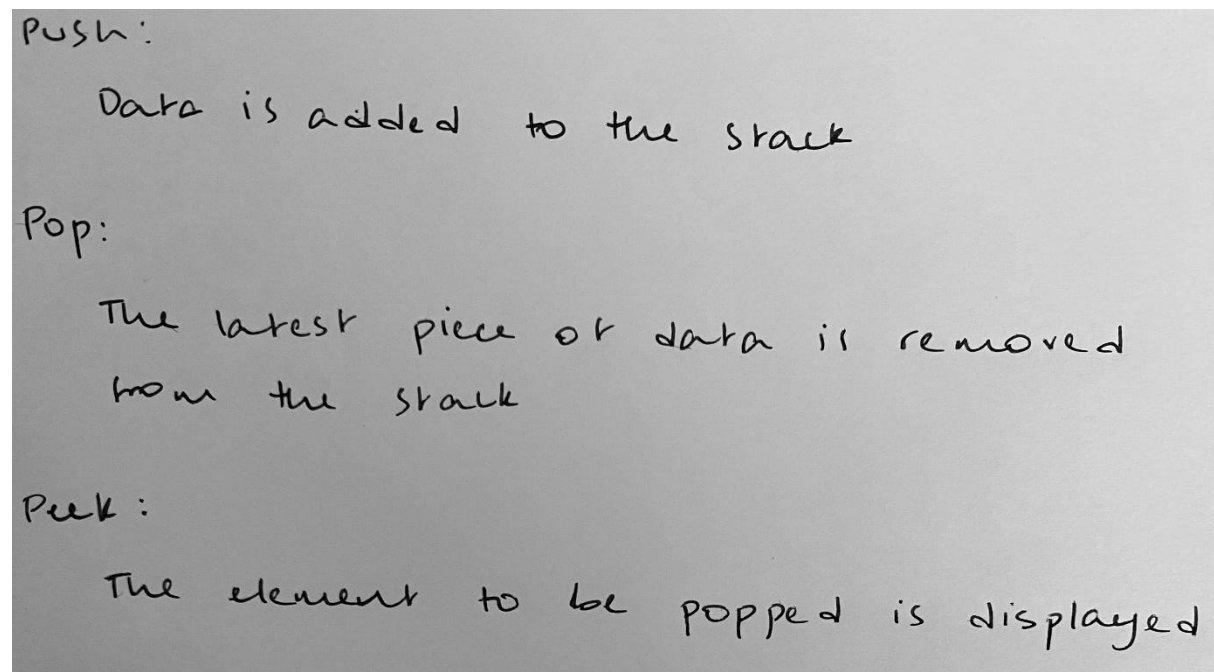 Push:
Data is added to the stack
Pop:
The latest piece of data is removed
from the stack
Peek:
The element to be popped is displayed